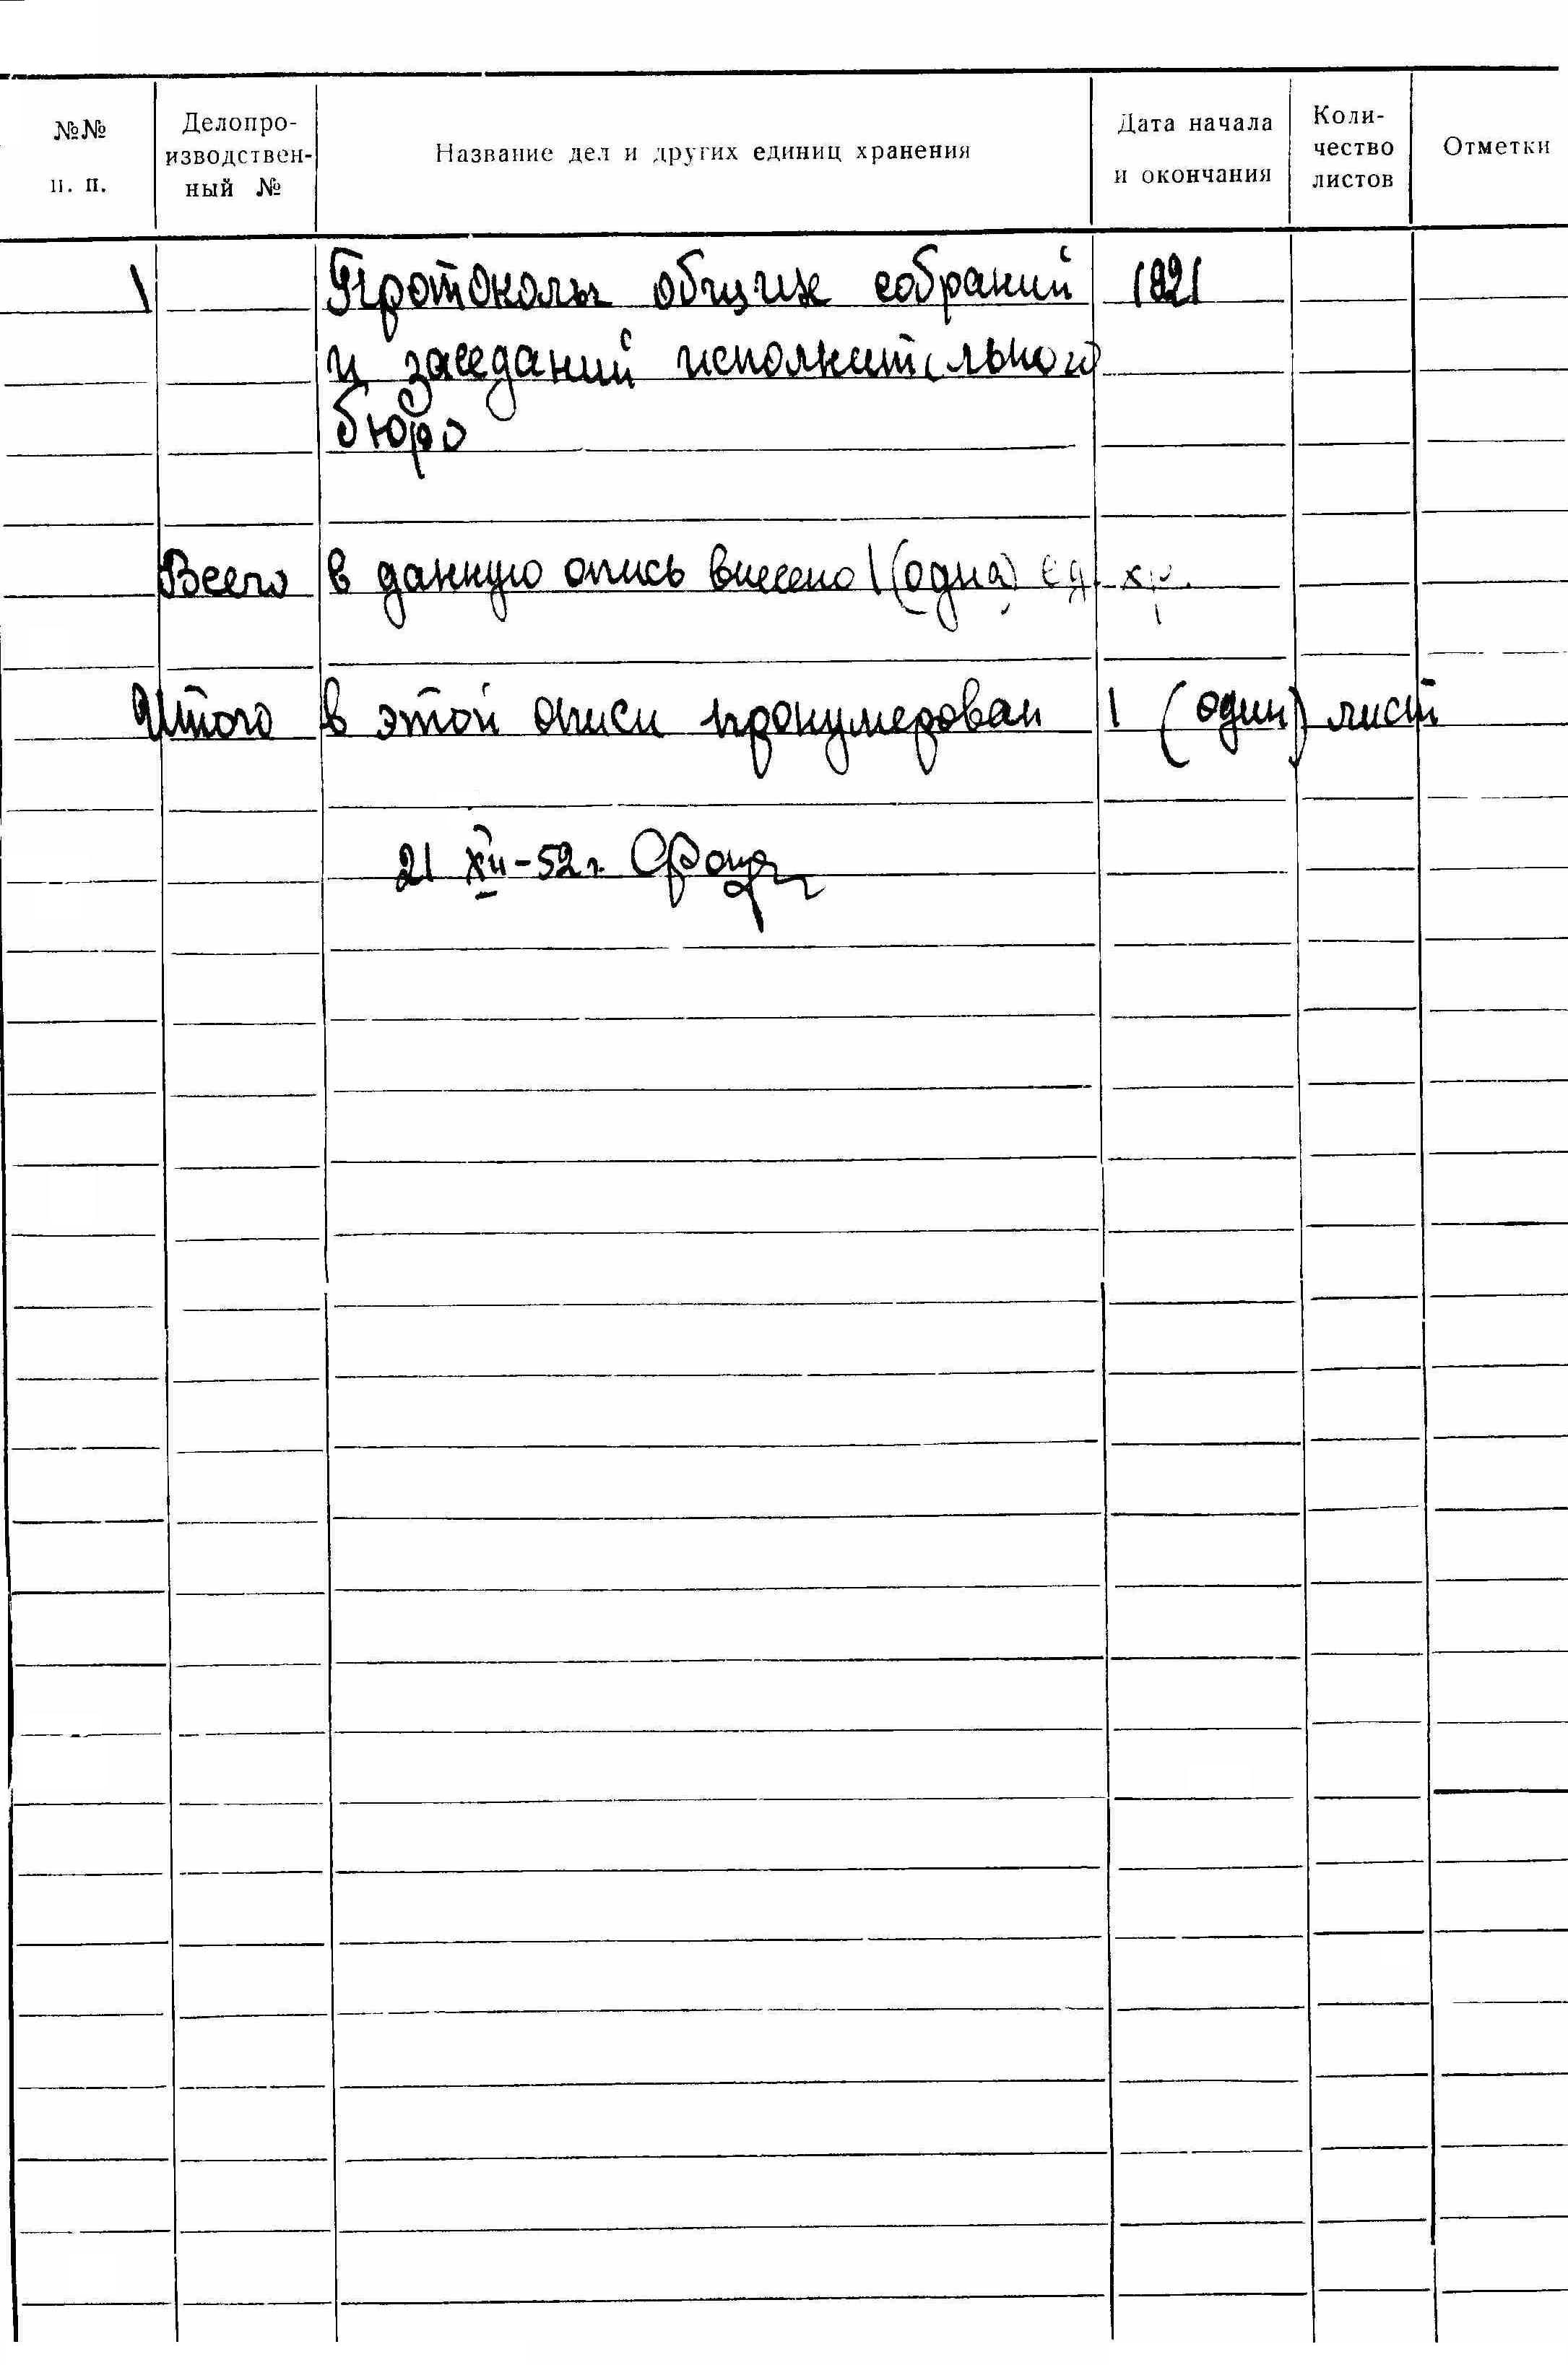 №№ п. п.
Делопро-
изводствен-
ный №
Название дел и других единиц хранения
Дата начала
и окончания
Коли-
чество
листов
Отметки
1 Протоколы общих собраний 1921
и заседаний исполнительного
бюро
Всего в данную опись внесено 1 (одна) ед. хр.
Итого в этой описи пронумерован 1 (один) лист
21 XII-52 г.